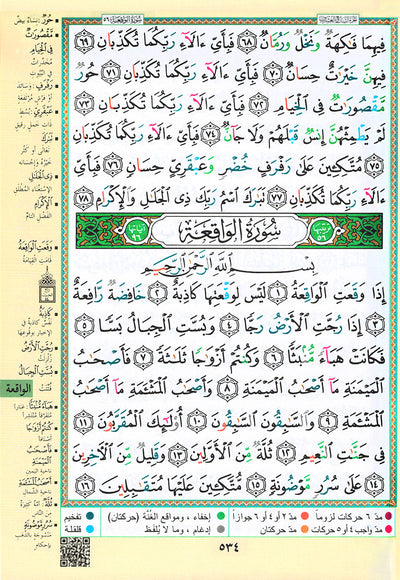 فِيهِمَا فَٰكِهَةٌ وَنَخْلٌ وَرُمَّانٌ ٦٨ فَبِأَيِّ ءَالَآءِ رَبِّكُمَا تُكَذِّبَانِ ٦٩
فِيهِنَّ خَيْرَٰتٌ حِسَانٌ ٧٠ فَبِأَيِّ ءَالَآءِ رَبِّكُمَا تُكَذِّبَانِ ٧١ حُورٌ
مَّقْصُورَٰتٌ فِي ٱلْخِيَامِ ٧٢ فَبِأَيِّ ءَالَآءِ رَبِّكُمَا تُكَذِّبَانِ ٧٣
لَمْ يَطْمِثْهُنَّ إِنسٌ قَبْلَهُمْ وَلَا جَآنٌّ ٧٤ فَبِأَيِّ ءَالَآءِ رَبِّكُمَا تُكَذِّبَانِ
٧٥ مُتَّكِـِٔينَ عَلَىٰ رَفْرَفٍ خُضْرٍ وَعَبْقَرِيٍّ حِسَانٍ ٧٦ فَبِأَيِّ
ءَالَآءِ رَبِّكُمَا تُكَذِّبَانِ ٧٧ تَبَٰرَكَ ٱسْمُ رَبِّكَ ذِي ٱلْجَلَٰلِ وَٱلْإِكْرَامِ ٧٨
سُورَةُ الوَاقِعَةِ
بِسْمِ ٱللَّهِ ٱلرَّحْمَٰنِ ٱلرَّحِيمِ
إِذَا وَقَعَتِ ٱلْوَاقِعَةُ ١ لَيْسَ لِوَقْعَتِهَا كَاذِبَةٌ ٢ خَافِضَةٌ رَّافِعَةٌ
٣ إِذَا رُجَّتِ ٱلْأَرْضُ رَجًّا ٤ وَبُسَّتِ ٱلْجِبَالُ بَسًّا ٥
فَكَانَتْ هَبَآءً مُّنۢبَثًّا ٦ وَكُنتُمْ أَزْوَٰجًا ثَلَٰثَةً ٧ فَأَصْحَٰبُ
ٱلْمَيْمَنَةِ مَآ أَصْحَٰبُ ٱلْمَيْمَنَةِ ٨ وَأَصْحَٰبُ ٱلْمَشْـَٔمَةِ مَآ أَصْحَٰبُ
ٱلْمَشْـَٔمَةِ ٩ وَٱلسَّٰبِقُونَ ٱلسَّٰبِقُونَ ١٠ أُو۟لَٰٓئِكَ ٱلْمُقَرَّبُونَ ١١
فِي جَنَّٰتِ ٱلنَّعِيمِ ١٢ ثُلَّةٌ مِّنَ ٱلْأَوَّلِينَ ١٣ وَقَلِيلٌ مِّنَ ٱلْءَاخِرِينَ
١٤ عَلَىٰ سُرُرٍ مَّوْضُونَةٍ ١٥ مُّتَّكِـِٔينَ عَلَيْهَا مُتَقَٰبِلِينَ ١٦
حُورٌ
مَّقْصُورَاتٌ
فِي الْخِيَامِ
رَفْرَفٍ
ذِي الْجَلَالِ
الْإِكْرَامِ
وَقَعَتِ الْوَاقِعَةُ
قامت القيامة
كَاذِبَةٌ
رُجَّتِ الْأَرْضُ
بُسَّتِ الْجِبَالُ
الواقعة
هَبَاءً مُنْبَثًّا
كُنْتُمْ أَزْوَاجًا
فَأَصْحَابُ
الْمَيْمَنَةِ
سُرُرٍ مَوْضُونَةٍ
مدّ ٦ حركات لزوماً
مدّ ٢ أو ٤ أو ٦ جوازاً
إخفاء، ومواقع الغُنَّة (حركتان)
تفخيم
مدّ واجب ٤ أو ٥ حركات
مدّ حركتان
إدغام، وما لا يُلفَظ
قلقلة
٥٣٤